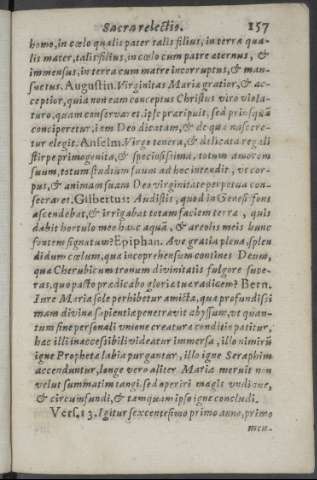 Sacra relectio. 157
homo, in cœlo qualis pater talis filius, in terra qua-
lis mater, talis filius, in cœlo cum patre aeternus, &
immensus, in terra cum matre incorruptus, & man-
suetus. Augustin. Virginitas Mariæ gratior, & ac-
ceptior, quia non eam conceptus Christus viro viola-
turo, quam conservaret, ipse præripuit, sed priusquā
conciperetur, iam Deo dicatam, & de qua nascere-
tur elegit. Anselm. Virgo tenera, & delicata regali
stirpe primogenita, & speciosissima, totum amorem
suum, totum studium suum ad hoc intendit, ut cor-
pus, & animam suam Deo virginitate perpetua con-
secraret. Gilbertus: Audistis, quod in Genesi fons
ascendebat, & irrigabat totam faciem terræ, quis
dabit hortulo meo hanc aquā, & areolis meis hunc
fontem signatum? Epiphan. Ave gratia plena, splen
didum cœlum, quæ incoprehensum contines Deum,
quæ Cherubicum tronum divinitatis fulgore supe-
ras, quo pacto prædicabo gloriæ tuæ radicem? Bern.
Iure Maria sole perhibetur amicta, quæ profundissi
mam divinæ sapientiæ penetravit abyssum, ut quan-
tum sine personali unione creaturæ conditio patitur,
hac illi inaccessibili videatur immersa, illo nimirū
igne Prophetæ labia purgantur, illo igne Seraphim
accenduntur, longe vero aliter Maria meruit non
velut summatim tangi, sed operiri magis undique,
& circunfundi, & tamquam ipso igne concludi.
Vers. 13. Igitur sexcentesimo primo anno, primo
men-